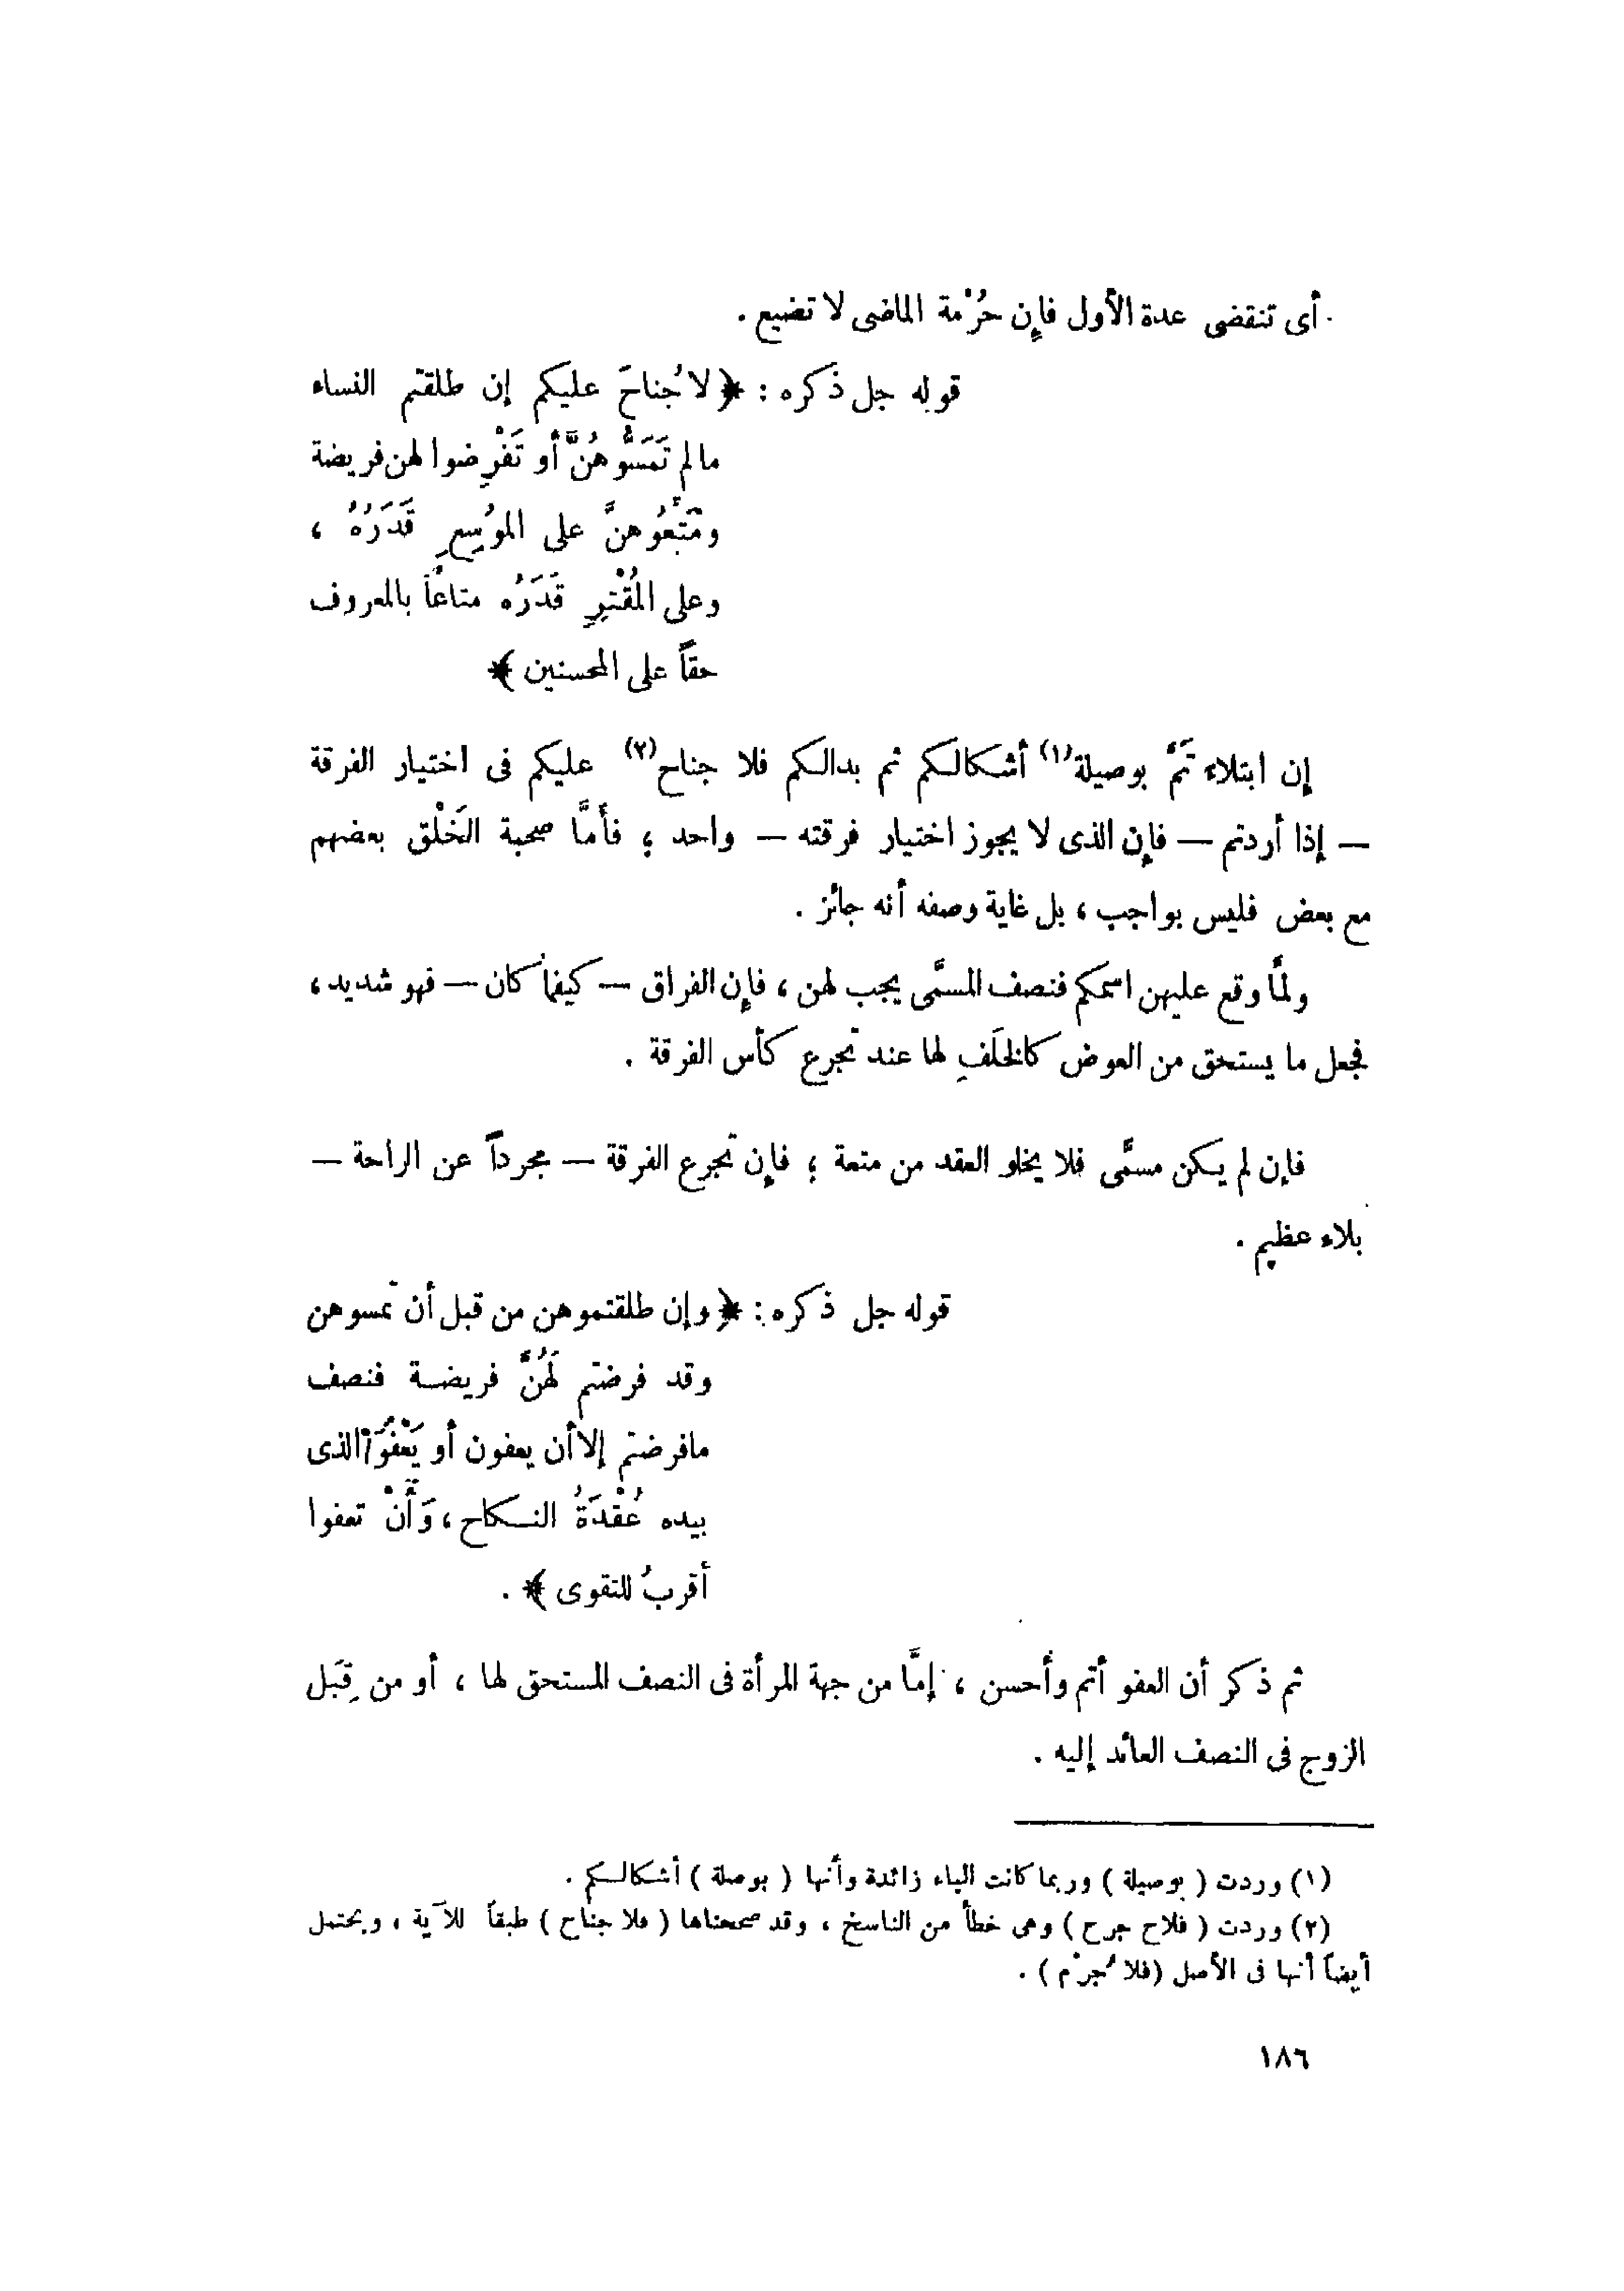 أى تنقضى عدة الأول فإن حُرْمة الماضى لا تضيع .
قوله جل ذكره : ﴿ لا جُناحَ عليكم إن طلقتم النساء
مالم تَمَسُّوهُنَّ أو تَفْرِضوا لهن فريضة
ومَتِّعُوهنَّ على الموُسِعِ قَدَرُهُ ،
وعلى المُقْتِرِ قَدَرُه متاعاً بالمعروف
حقاً على المحسنين ﴾
إن ابتلاء تَمَّ بوصيلة(١) أشكالكم ثم بدالكم فلا جناح(٢) عليكم فى اختيار الفرقة
— إذا أردتم — فإن الذى لا يجوز اختيار فرقته — واحد ؛ فأمَّا صحبة الخَلْق بعضهم
مع بعض فليس بواجب ، بل غاية وصفه أنه جائز .
ولمَّا وقع عليهن اسمكم فنصف المسمَّى يجب لهن ، فإن الفراق — كيفما كان — فهو شديد ،
فجعل ما يستحق من العوض كالخلَفِ لها عند تجرع كأس الفرقة .
فإن لم يكن مسمَّى فلا يخلو العقد من متعة ؛ فإن تجرع الفرقة — مجرداً عن الراحة —
بلاء عظيم .
قوله جل ذكره : ﴿ وإن طلقتموهن من قبل أن تمسوهن
وقد فرضتم لَهُنَّ فريضة فنصف
مافرضتم إلا أن يعفون أو يَعْفُوَا الذى
بيده عُقْدَةُ النكاح ، وَأَنْ تعفوا
أقربُ للتقوى ﴾ .
ثم ذكر أن العفو أتم وأحسن ، إمَّا من جهة المرأة فى النصف المستحق لها ، أو من قِبَل
الزوج فى النصف العائد إليه .
(١) وردت ( بوصيلة ) وربما كانت الياء زائدة وأنها ( بوصلة ) أشكالكم .
(٢) وردت ( فلاح جرح ) وهى خطأ من الناسخ ، وقد صححناها ( فلا جناح ) طبقاً للآية ، ويحتمل
أيضاً أنها فى الأصل ( فلا جُرْم ) .
١٨٦